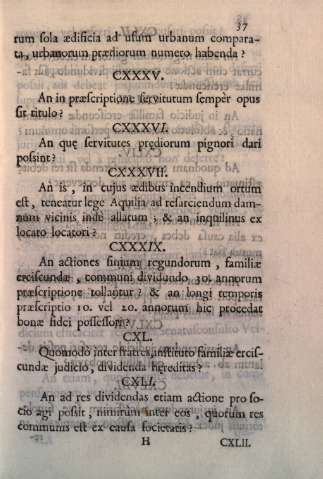 37
rum sola ædificia ad usum urbanum compara-
ta, urbanorum prædiorum numero habenda?
CXXXV.
An in præscriptione servitutum semper opus
sit titulo?
CXXXVI.
An quę servitutes prędiorum pignori dari
possint?
CXXXVII.
An is, in cujus ædibus incendium ortum
est, teneatur lege Aquilia ad resarciendum dam-
num vicinis inde allatum, & an inquilinus ex
locato locatori?
CXXXIX.
An actiones finium regundorum, familiæ
erciscundæ, communi dividundo 30. annorum
præscriptione tollantur? & an longi temporis
præscriptio 10. vel 20. annorum hic procedat
bonæ fidei possessori?
CXL.
Quomodo inter fratres, instituto familiæ ercis-
cundæ judicio, dividenda hereditas?
CXLI.
An ad res dividendas etiam actione pro so-
cio agi possit, nimirum inter eos, quorum res
communis est ex causa societatis?
H CXLII.